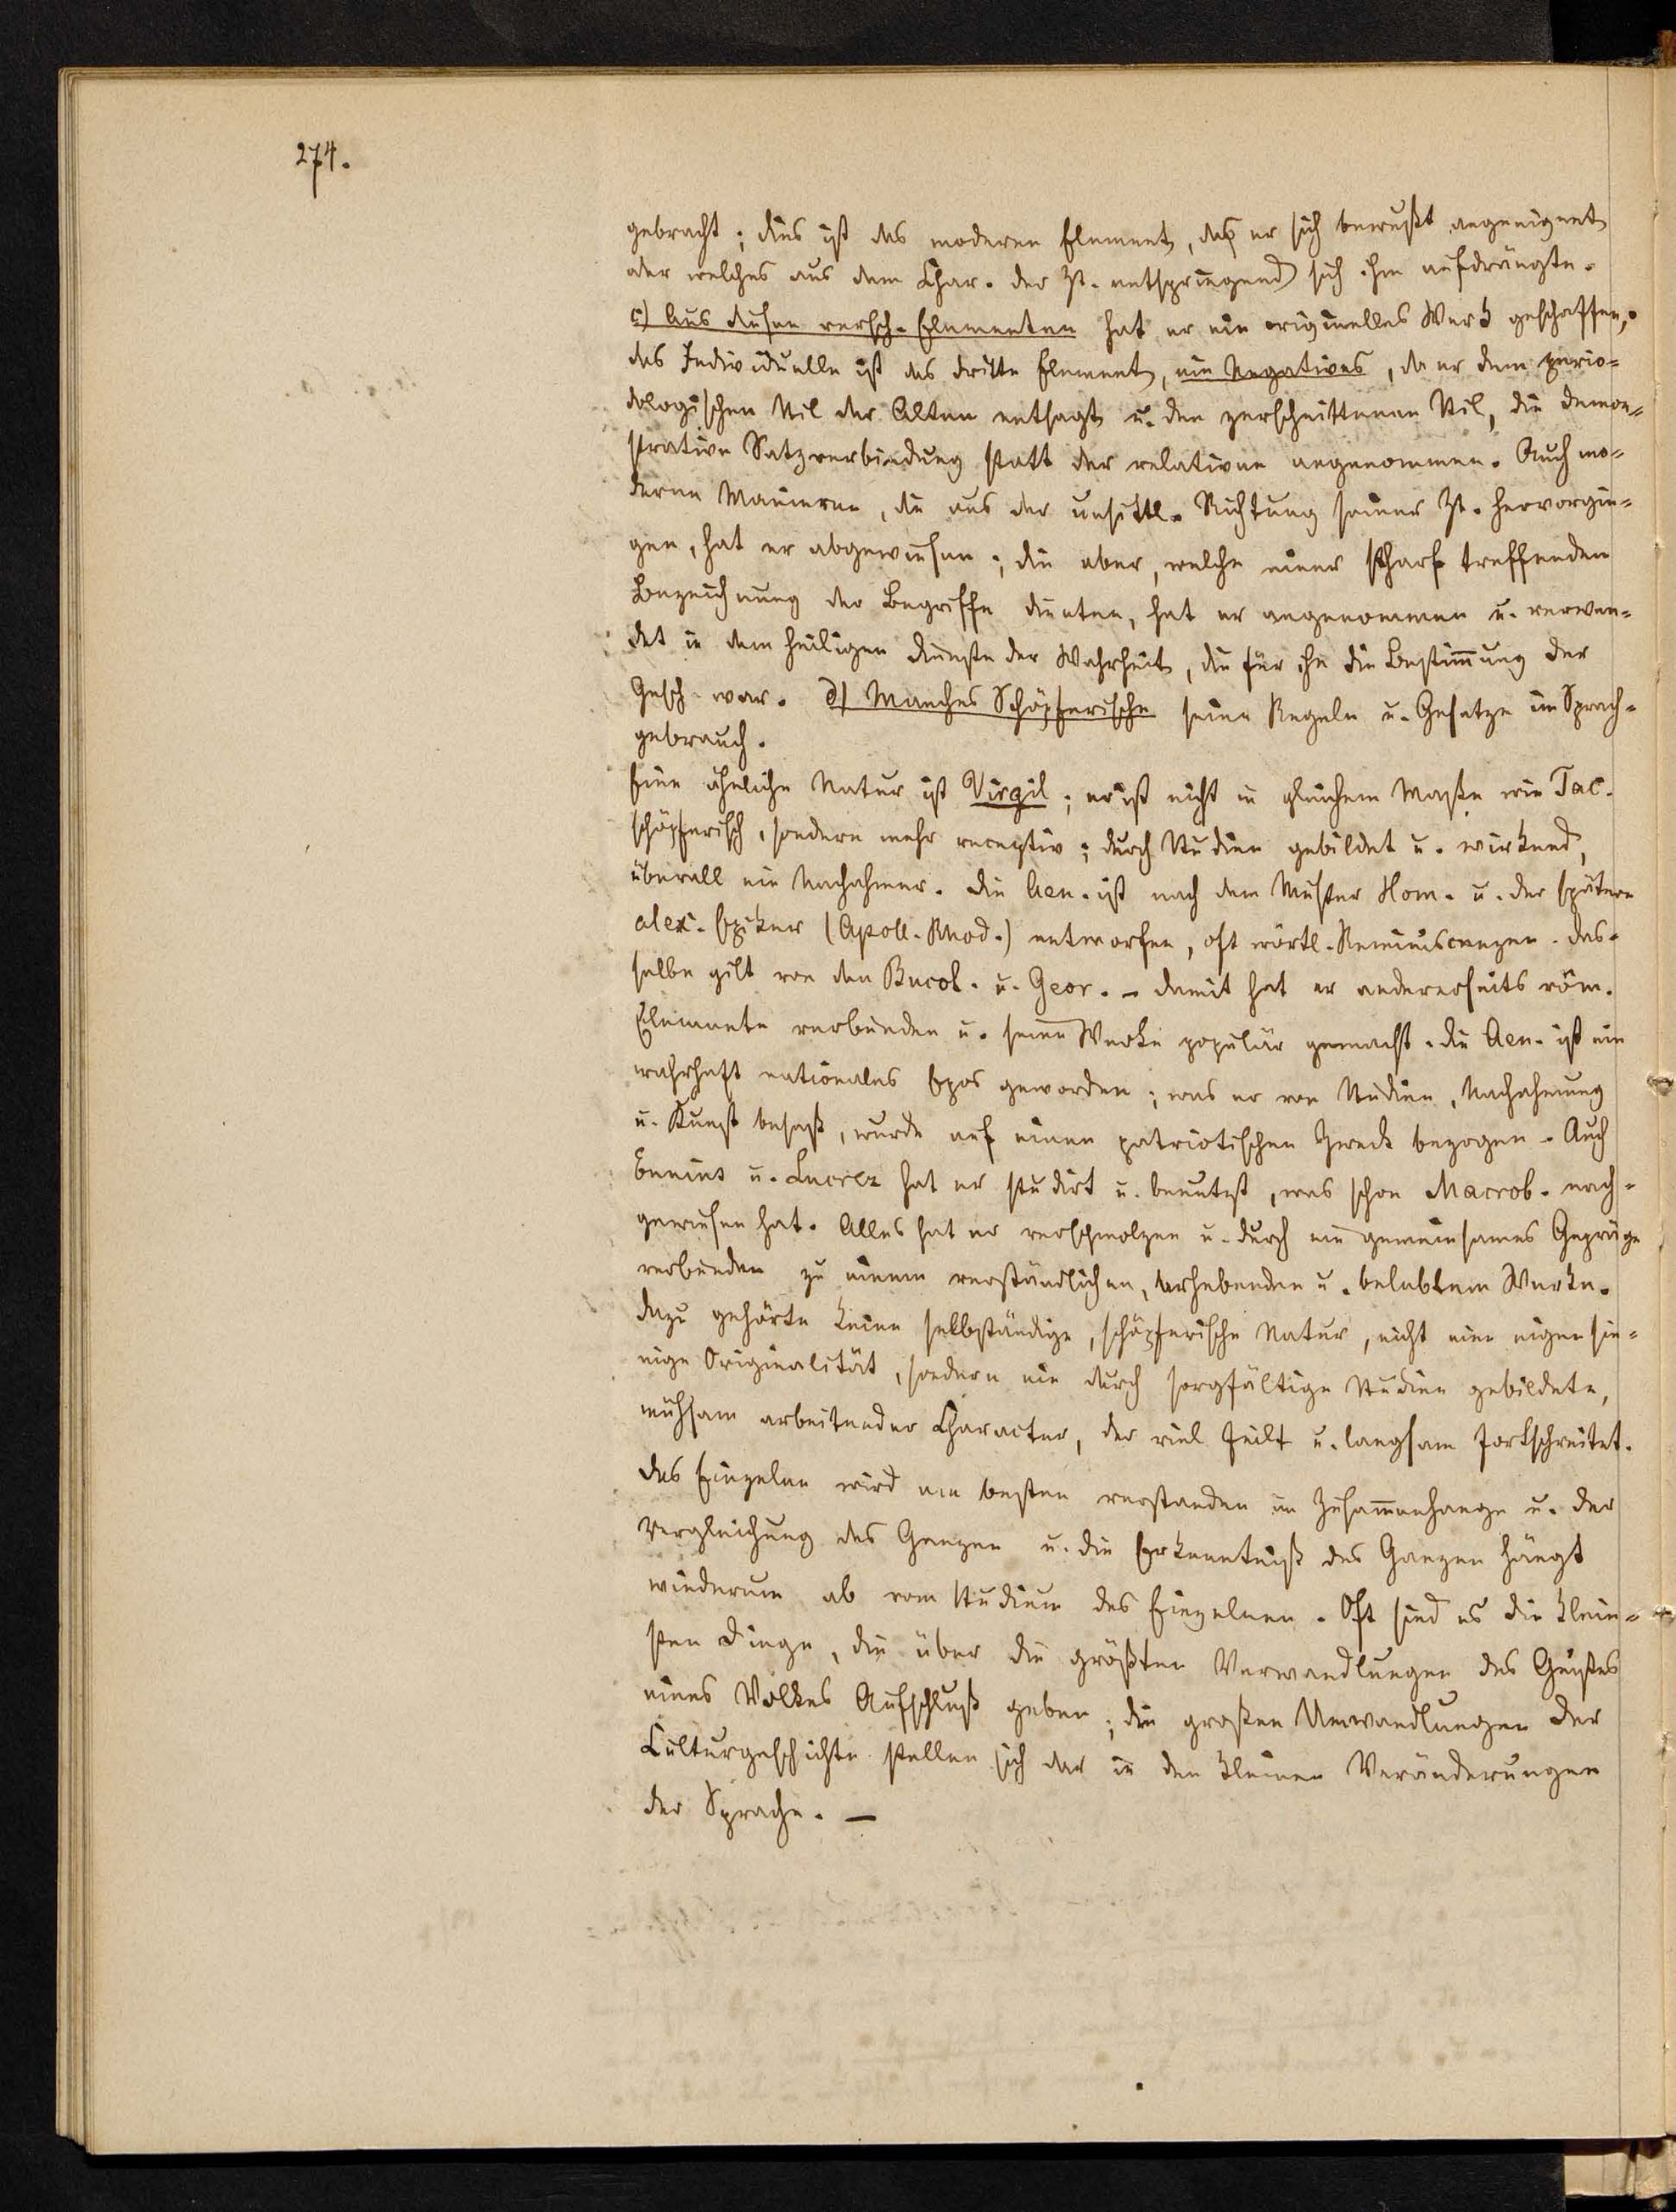 274.
gebracht; dies ist das moderne Element, daß er sich bewußt angeeignet
oder welches aus dem Char. der Zt. entspringend sich ihm aufdrängte.
c) Aus diesen versch. Elementen hat er ein originelles Werk geschaffen,
das Individuelle ist das dritte Element, ein Negatives, da er dem perio-
dologischen Stil der Alten entsagt u. den zerschnittenen Stil, die demon-
strative Satzverbindung statt der relativen angenommen. Auch mo-
derne Manieren, die aus der unsittl. Richtung seiner Zt. hervorgin-
gen, hat er abgewiesen; die aber, welche einer scharf treffenden
Bezeichnung der Begriffe dienten, hat er angenommen u. verwen-
det in dem heiligen Dienste der Wahrheit, die für ihn die Bestimmung der
Gesch. war. d) Manches Schöpferische seine Regeln u. Gesetze im Sprach-
gebrauch.
Eine ähnliche Natur ist Virgil; er ist nicht in gleichem Maße wie Tac.
schöpferisch, sondern mehr receptiv; durch Studien gebildet u. wirkend,
überall ein Nachahmer. Die Aen. ist nach dem Muster Hom. u. der spätern
alex. Epiker (Apoll. Rhod.) entworfen, oft wörtl. Reminiscenzen. Das-
selbe gilt von den Bucol. u. Geor. - Damit hat er andererseits röm.
Elemente verbunden u. seine Werke populär gemacht. Die Aen. ist ein
wahrhaft nationales Epos geworden; was er von Studien, Nachahmung
u. Kunst besaß, wurde auf einen patriotischen Zweck bezogen. Auch
Ennius u. Lucrez hat er studirt u. benutzt, was schon Macrob. nach-
gewiesen hat. Alles hat er verschmolzen u. durch ein gemeinsames Gepräge
verbunden zu einem verständlichen, erhebenden u. belebtem Werke.
Dazu gehörte keine selbständige, schöpferische Natur, nicht eine eigensin-
nige Originalität, sondern ein durch sorgfältige Studien gebildete,
mühsam arbeitender Character, der viel feilt u. langsam fortschreitet.
Das Einzelne wird am besten verstanden im Zusammenhange u. der
Vergleichung des Ganzen u. die Erkenntniß des Ganzen hängt
wiederum ab vom Studium des Einzelnen. Oft sind es die klein-
sten Dinge, die über die größten Verwandlungen des Geistes
eines Volkes Aufschluß geben; die großen Umwandlungen der
Culturgeschichte stellen sich dar in den kleinen Veränderungen
der Sprache. —